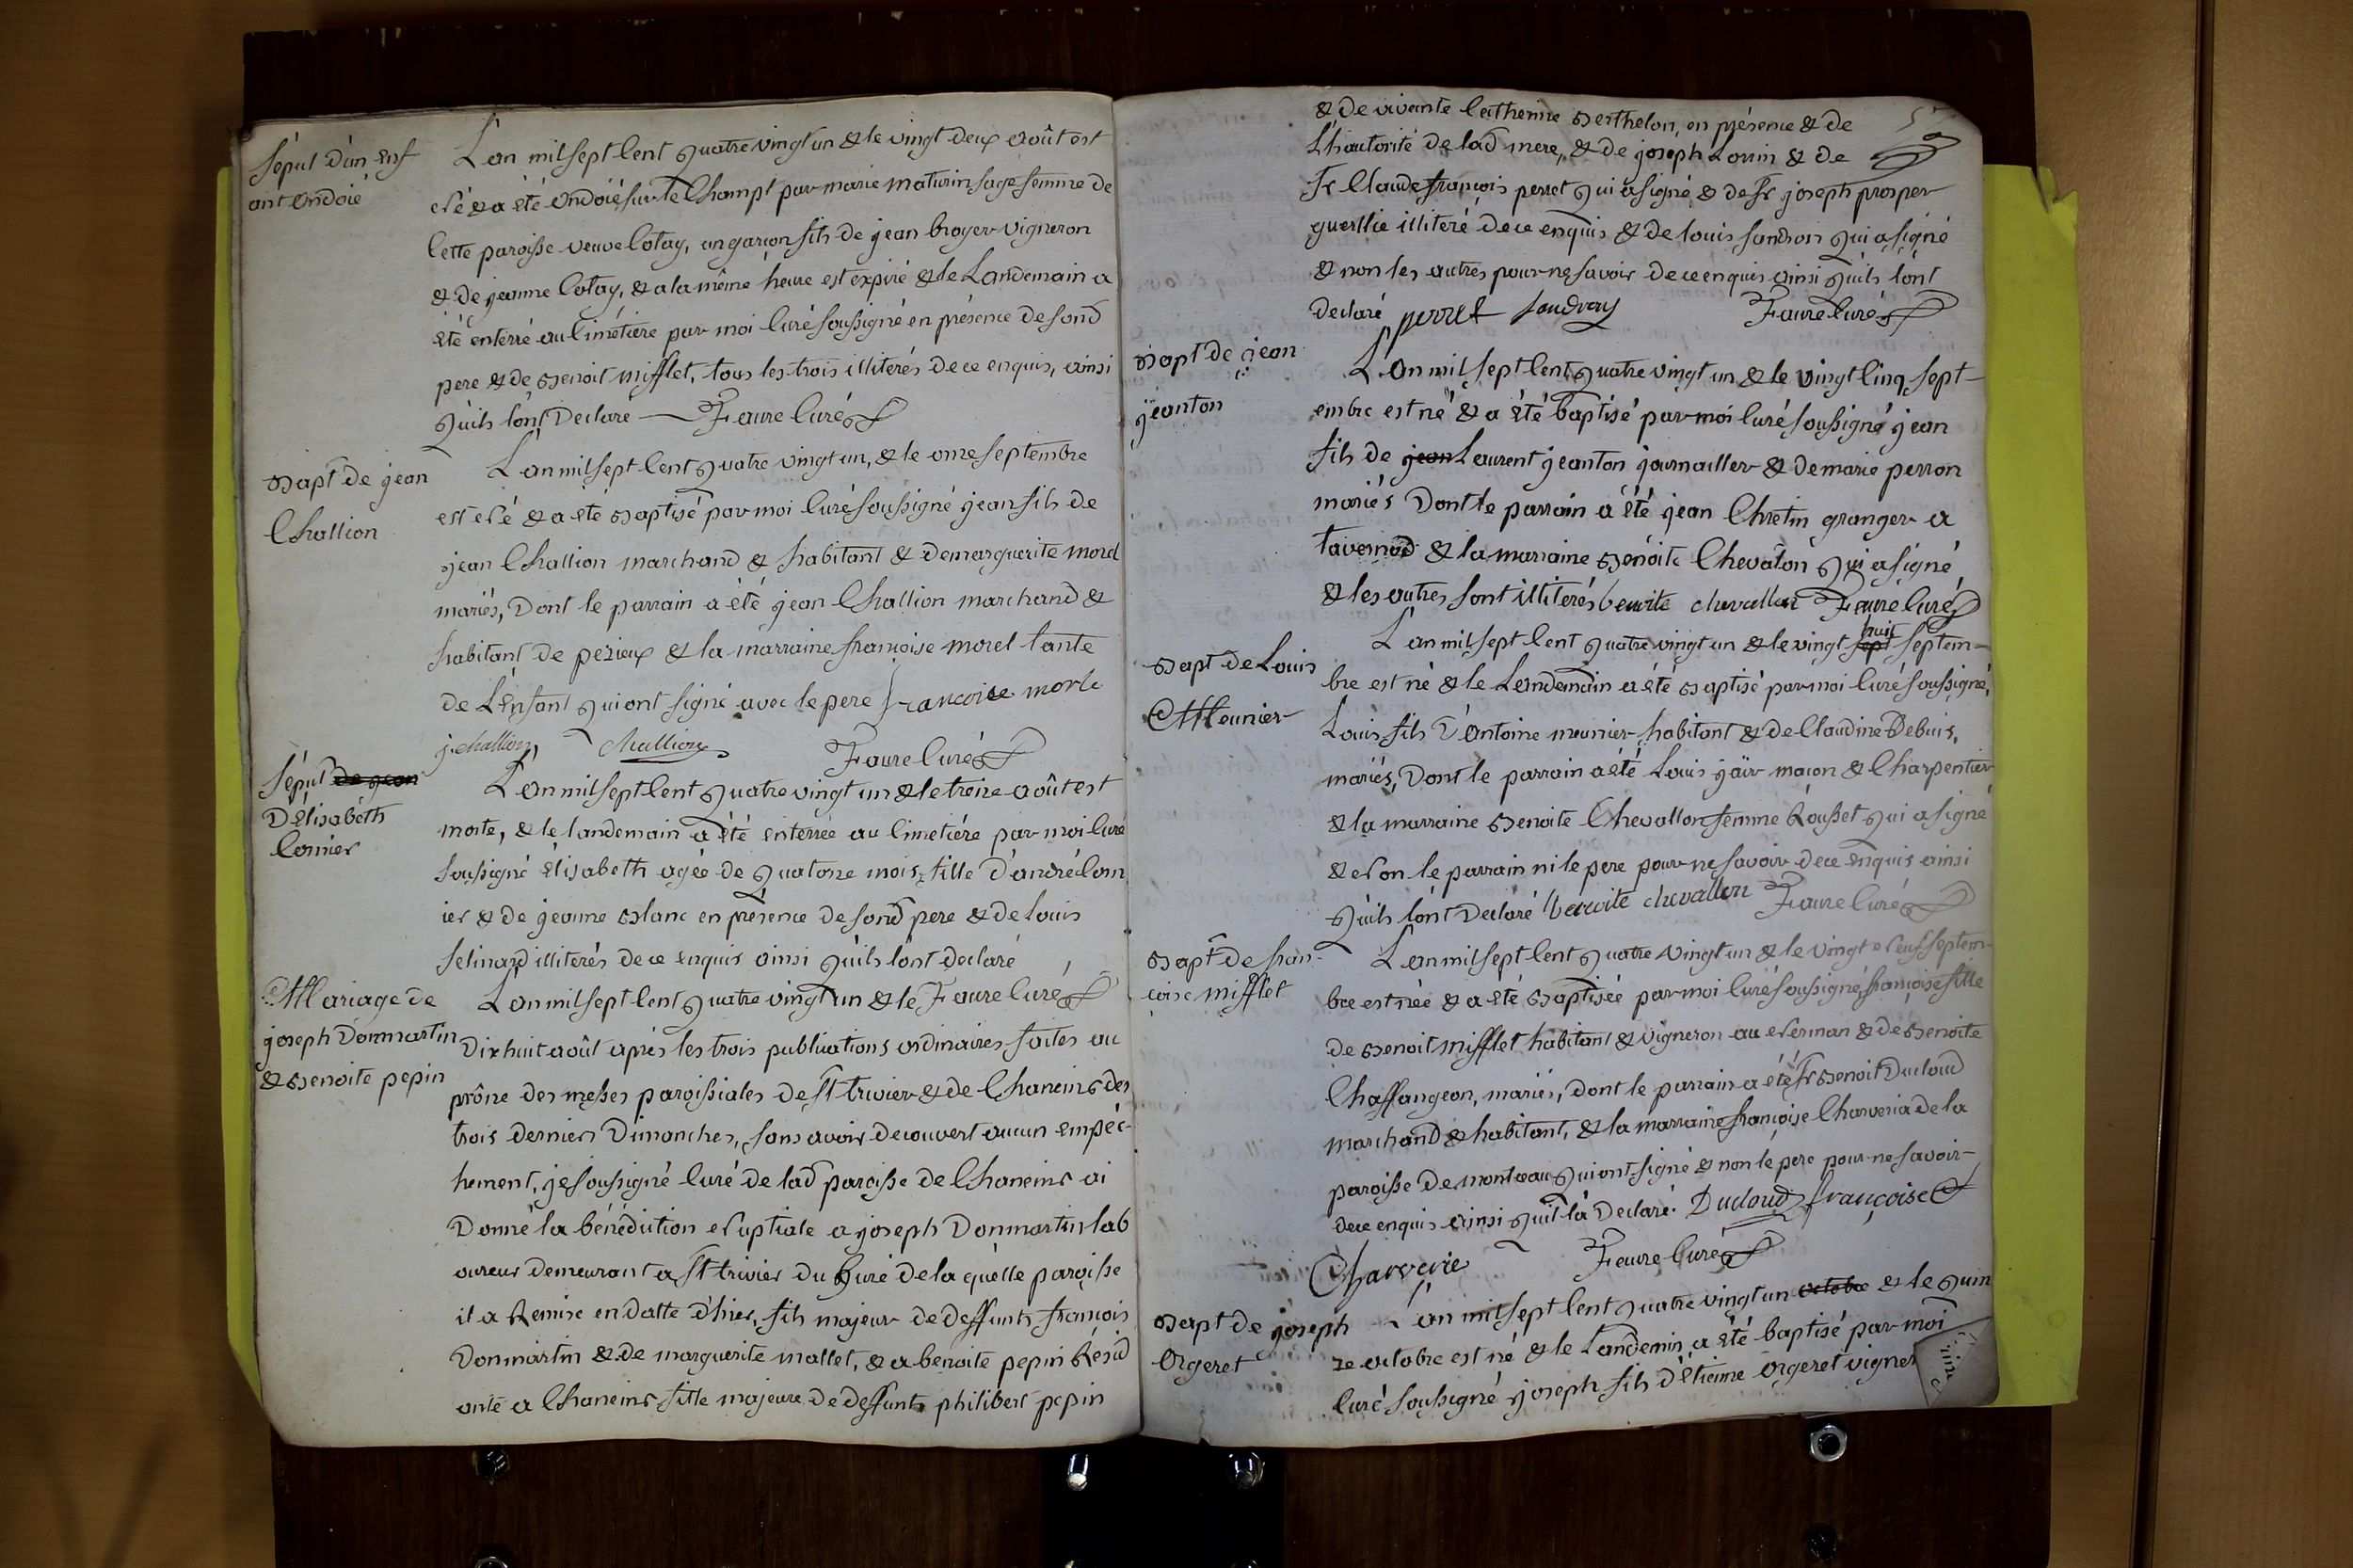 Sépul d'un enf
ant ondoié
L'an mil sept Cent quatre vingt un & le vingt deux août est
né & a été ondoié sur le Champt par marie maturin sage femme de
Cette paroisse veuve Cotay, un garçon fils de jean broyer vigneron
& de jeanne Cotay, & a la même heure est expiré & le Landemain a
été enterré au Cimétiere par moi Curé soussigné en présence de sond
pere & de Benoit mifflet, tous les trois illiterés de ce enquis, ainsi
qu'ils l'ont Declaré Faure Curé
Bapt de jean
Challion
L'an mil sept Cent quatre vingt un, & le onze septembre
est né & a été Baptisé par moi Curé soussigné jean fils de
jean Challion marchand & habitant & de marguerite morel
mariés, Dont le parrain a été jean Challion marchand &
habitant de pezieux & la marraine françoise morel tante
de L'enfant qui ont signé avec le pere francoise morle
j. challion challion Faure Curé
Sépul de jean
D'élisabéth
Connier
L'an mil sept Cent quatre vingt un & le treize août est
morte, & le landemain a été enterrée au Cimetiére par moi Curé
soussigné élisabeth agée de quatorze mois, fille d'andré Conn
ier & de jeanne Blanc en présence de sond pere & de Louis
selinard illiterés de ce enquis ainsi qu'ils l'ont declaré
Faure Curé
Mariage de
joseph Donmartin
& Benoite pepin
L'an mil sept Cent quatre vingt un & le
Dix huit août aprés les trois publications ordinaires faites au
prône des messes paroissiales de st trivier & de Chaneins des
trois derniers Dimanches, sans avoir decouvert aucun empéc-
hement, je soussigné Curé de lad paroisse de Chaneins ai
Donné la bénédiction nuptiale a joseph Donmartin lab
oureur demeurant a st trivier du Curé de la quélle paroisse
il a Remise en datte d'hier, fils majeur de deffunts françois
Donmartin & de marguerite mallet, & a benoite pepin Résid
ante a Chaneins fille majeure de deffunts philibert pepin
& de vivante Catherine Berthelon, en présence & de
L'hautorité de lad mere, & de joseph Lorrin & de
sr Claude françois perret qui a signé & de sr joseph prosper
guerllie illiteré de ce enquis & de louis sandron qui a signé
& non les autres pour ne savoir de ce enquis ainsi qu'ils l'ont
Declaré perret Faure Curé
Bapt de jean
jeanton
L'an mil sept Cent quatre vingt un & le vingt Cinq sept-
embre est né & a été baptisé par moi Curé soussigné jean
fils de jean Laurent jeanton journallier & de marie perron
mariés Dont le parrain a été jean Chretin granger a
tavernod & la marraine Benoite Chevalon qui a signé
& les autres sont illiterés benoite chevallon Faure Curé
Bapt de Louis
Meunier
L'an mil sept Cent quatre vingt un & le vingt sept huit septem-
bre est né & le Landemain a été Baptisé par moi Curé soussigné,
Louis fils d'antoine meunier habitant & de Claudine Debuis,
mariés, Dont le parrain a été Louis jair maçon & Charpentier
& la marraine Benoite Chevallon femme Rousset qui a signé
& non le parrain ni le pere pour ne savoir de ce enquis ainsi
qu'ils l'ont Declaré benoite chevallon Faure Curé
Bapt de fran-
coise Mifflet
L'an mil sept Cent quatre vingt un & le vingt neuf septem-
bre est née & a été Baptisée par moi Curé soussigné, françoise fille
de Benoit Mifflet habitant & vigneron au nerman & de Benoite
Chaffangeon, mariés, dont le parrain a été sr Benoit Ducloud
marchand & habitant, & la marraine françoise Charveria de la
paroisse de montceau qui ont signé & non le pere pour ne savoir
de ce enquis ainsi qu'il l'a Declaré. Ducloud françoise
Charverie Faure Curé
Bapt de joseph
Orgeret
L'an mil sept Cent quatre vingt un octobre & le quin
ze octobre est né & le Landemin a été baptisé par moi
Curé soussigné joseph fils d'étienne orgeret vigner